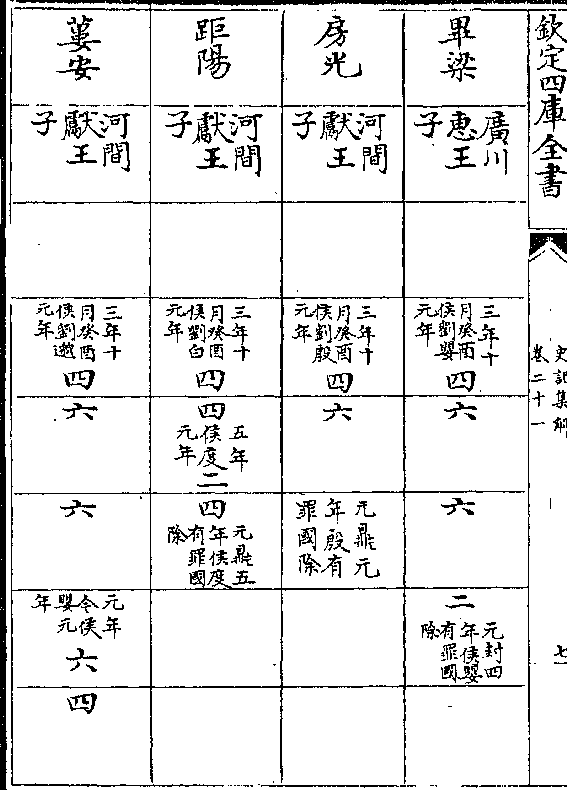 欽定四庫全書
史記集解
卷二十一
七
畢梁
廣川
惠王
子
三年十
月癸酉
侯劉嬰
元年
四
六
六
二
元封四
年侯嬰
有罪國
除
房光
河間
獻王
子
三年十
月癸酉
侯劉殷
元年
四
六
元鼎元
年殷有
罪國除
距陽
河間
獻王
子
三年十
月癸酉
侯劉白
元年
四
四
五年
侯度
元年
二
四
元鼎五
年侯度
有罪國
除
蔞安
河間
獻王
子
三年十
月癸酉
侯劉邈
元年
四
六
六
元年
今侯
嬰元
年
六
四